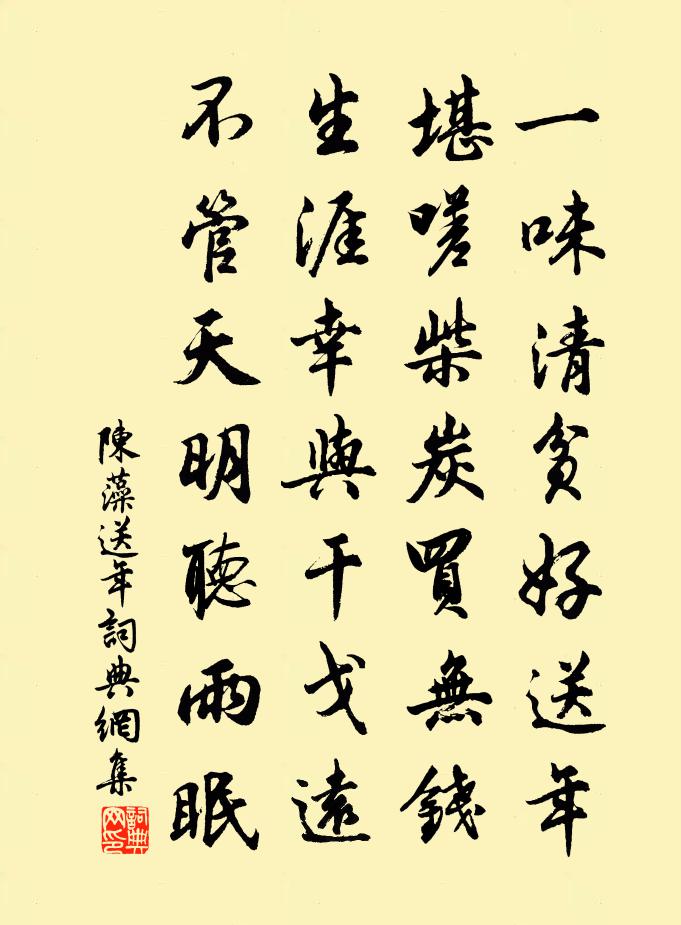 一味清貧好送年
堪嗟柴炭買無錢
生涯幸與干戈遠
不管天明聽雨眠
陳藻送年詞典網集
詞典網印